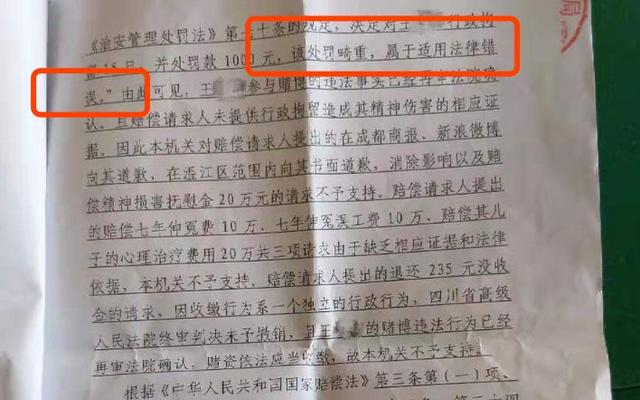 《治安管理处罚法》第七十条的规定，决定对王 行政拘
留15日，并处罚款1000元，该处罚畸重，属于适用法律错
误。”由此可见，王 参与赌博的违法事实已经再审法院确
认，且赔偿请求人未提供行政拘留造成其精神伤害的相应证
据，因此本机关对赔偿请求人提出的在成都商报、新浪微博
向其道歉，在温江区范围内向其书面道歉，消除影响以及赔
偿精神损害抚慰金20万元的请求不予支持。赔偿请求人提出
的赔偿七年伸冤费10万、七年伸冤误工费10万、赔偿其儿
子的心理治疗费用20万共三项请求由于缺乏相应证据和法律
依据，本机关不予支持。赔偿请求人提出的退还235元没收
金的请求，因收缴行为系一个独立的行政行为，四川省高级
人民法院终审判决未予撤销，且王 的赌博违法行为已经
再审法院确认，赌资依法应当收缴，故本机关不予支持。
根据《中华人民共和国国家赔偿法》第三条第（一）项、